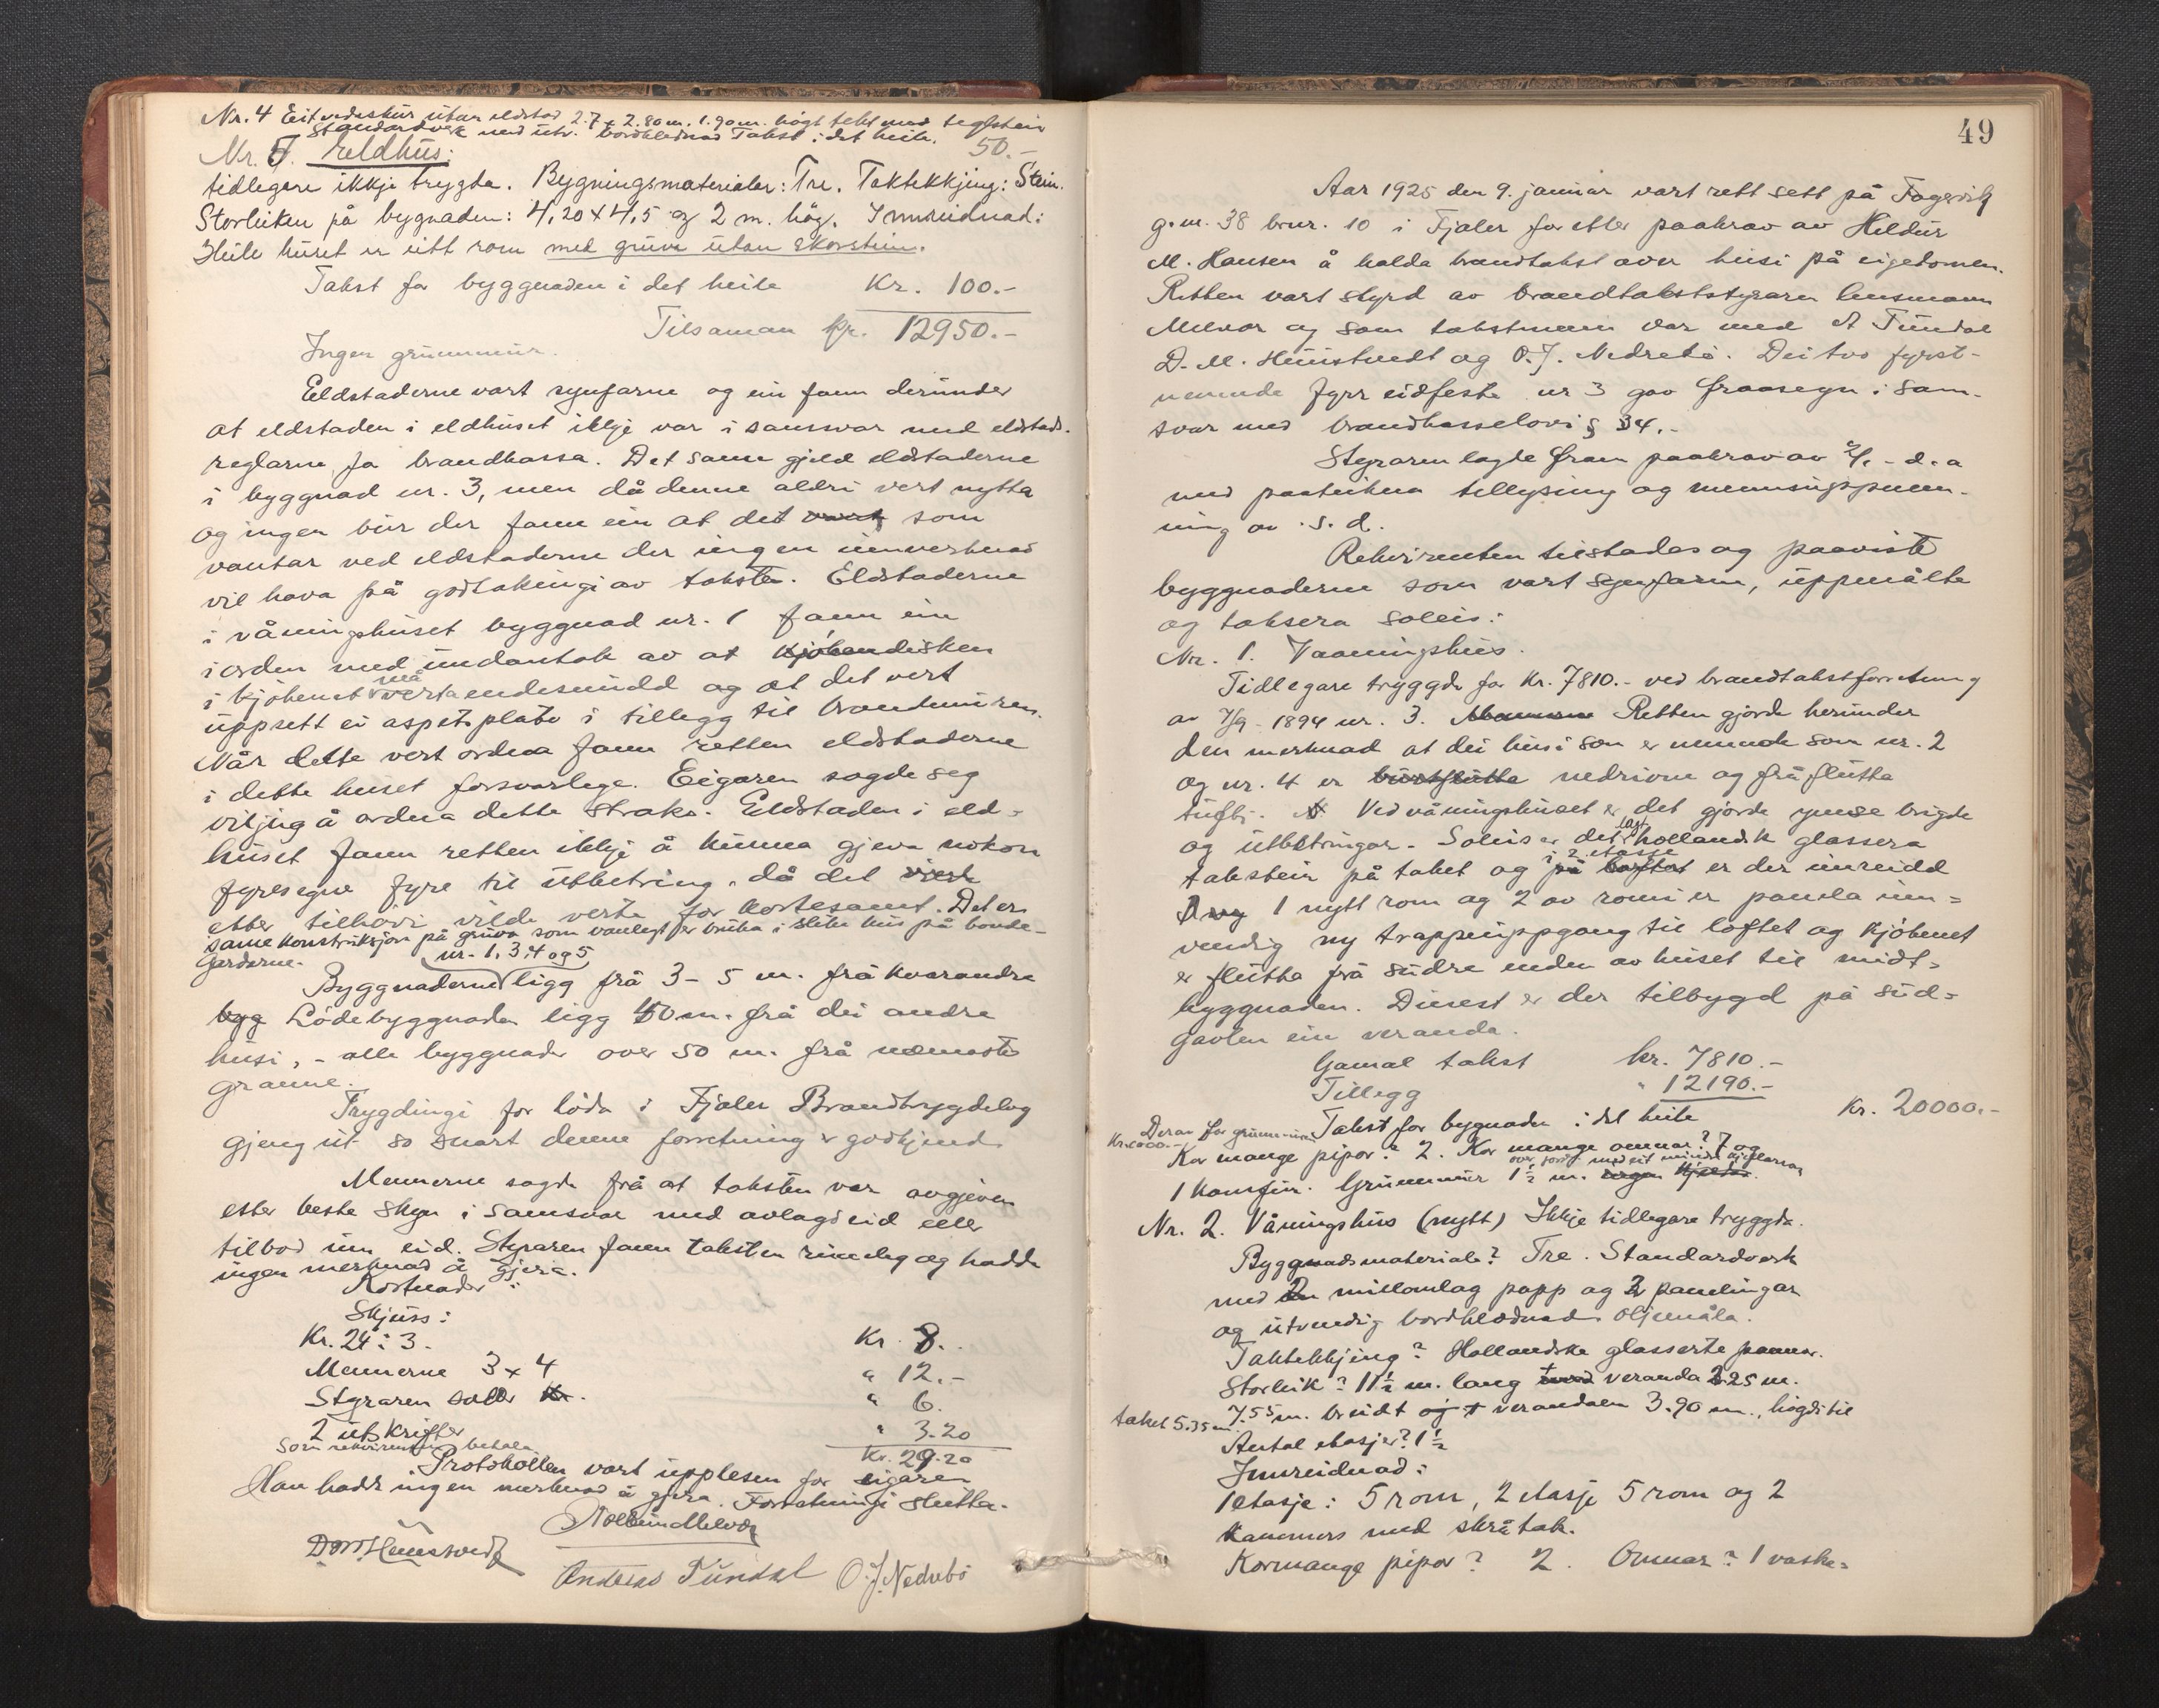 Nr. 4 Eit vedaskur utan eldstad 2.7 x 2.80 m. 1.90 m. högt tekt med teglstein
Standardverk med utv. bordklednad Takst i det heile. 50.-
Nr. 5. Eldhus:
tidlegare ikkje trygda. Bygningsmaterialer: Tre. Taktekkjing: Stein.
Storleiken på bygnaden: 4,20 x 4,5 og 2 m. høg. Innreidnad:
Heile huset er eitt rom med gruve utan skorstein.
Takst for byggnaden i det heile Kr. 100.-
Tilsaman kr. 12950.-
Ingen grunnmur.
Eldstaderne vart synfarne og ein fann derunder
at eldstaden i eldhuset ikkje var i samsvar med eldstads-
reglarne for brandkassa. Det same gjeld eldstaderne
i byggnad nr. 3, men då denne aldri vert nytta
og ingen bur der fann ein at det vart som
vantar ved eldstaderne der ingen innverknad
vil hava på godtakingi av taksten. Eldstaderne
i våningshuset byggnad nr. 1 fann ein
i orden med undantak av at kjökendisken
i kjökenet må verta endesnudd og at det vert
uppsett ei aspetplate i tillegg til brandmuren.
Når dette vert ordna fann retten eldstaderne
i dette huset forsvarlege. Eigaren sagde seg
viljug å ordna dette straks. Eldstaden i eld-
huset fann retten ikkje å kunna gjeva nokon
fyresegn fyre til utbetring, då det vert
etter tilhøvi vilde verta for kostesamt. Det er
same konstruksjon på gruva som vanlegt er bruka i slike hus på bonde-
gardarne.
nr. 1, 3, 4 og 5
Byggnaderne ligg frå 3 - 5 m. frå kvarandre
byg Lödebyggnaden ligg 40 m. frå dei andre
husi, - alle byggnader over 50 m. frå næmaste
granne.
Trygdingi for löda i Fjaler Brandtrygdelag
gjeng ut so snart denne forretning er godkjend.
Mennerne sagde frå at taksten var avgjeven
etter beste skyn i samsvar med avlagd eid eller
tilbod um eid. Styraren fann taksten rimeleg og hadde
ingen merknad å gjera.
Kostnader:
Skjuss:
Kr. 24 : 3. Kr. 8.
Mennerne 3 x 4 " 12.-
Styraren " 6.
2 utskrifter " 3.20
Som rekvirenten betala Kr. 29.20
Protokollen vart upplesen for eigaren
Han hadde ingen merknad å gjera. Forretningi slutta.
D M Hunstvedt
Andreas Tundal O. J. Nedrebö
49
Aar 1925 den 9. januar vart rett sett på Fagervik
g.nr. 38 brnr. 10 i Fjaler for etter paakrav av Hildur
M. Hansen å halda brandtakst over husi på eigedomen.
Retten vart styrd av brandtakststyraren lensmann
Melvær og som takstmenn var med A Tundal
D. M. Hunstvedt og O. J. Nedrebö. Dei tvo fyrst-
nemnde fyrr eidfeste nr 3 gav fraasegn i sam-
svar med brandkasselovi § 34.-
Styraren lagde fram paakrav av 2/1 - d. a
med paateikna tillysing og mennuppnem-
ning av s. d.
Rekvirenten tilstades og paaviste
byggnaderne som vart synfarne, uppmålte
og taksera soleis:
Nr. 1. Vaaningshus.
Tidlegare tryggde for Kr. 7810.- ved brandtakstforretning
av 7/9 - 1894 nr. 3. Retten gjorde herunder
den merknad at dei husi som er nemnde som nr. 2
og nr. 4 er burtflutte nedrivne og fråflutta
tufti. Ved våningshuset er det gjorde ymse brigde
og utbetringar. Soleis er det lagt hollandsk glassera
takstein på taket og på loftet i 2. etasje er der innreidd
1 nytt rom og 2 av romi er panela inn-
vendig ny trappeuppgang til loftet og kjökenet
er flutta frå södre enden av huset til midt-
byggnaden. Dinest er der tilbygd på sud-
gavlen ein veranda.
Gamal takst kr. 7810.-
Tillegg " 12190.-
Takst for bygnaden i det heile Kr. 20000.-
Derav for grunnmuren Kr. 1000.-
Kor mange pipor? 2. Kor mange omnar? 7 og
1 komfur. Grunnmur 1 1/2 m. over jord med eit mindre kjellarrom ingen kjellar.
Nr. 2. Våningshus (nytt) Ikkje tidlegare tryggda.
Byggnadsmateriale? Tre. Standardverk
med 2 millomlag papp og 2 panelingar
og utvendig bordklædnad oljemåla.
Taktekkjing? Hollandske glasserte pannor.
Storleik? 11 1/2 m. lang + veranda 2.25 m.
7.55 m. breidt og + verandaen 3.90 m., högd til
taket 5.35 m.
Antal etasjer? 1 1/2
Innreidnad:
1 etasje: 5 rom, 2 etasje 5 rom og 2
kammers med skråtak.
Kormange pipor? 2. Omnar? 1 vaske-